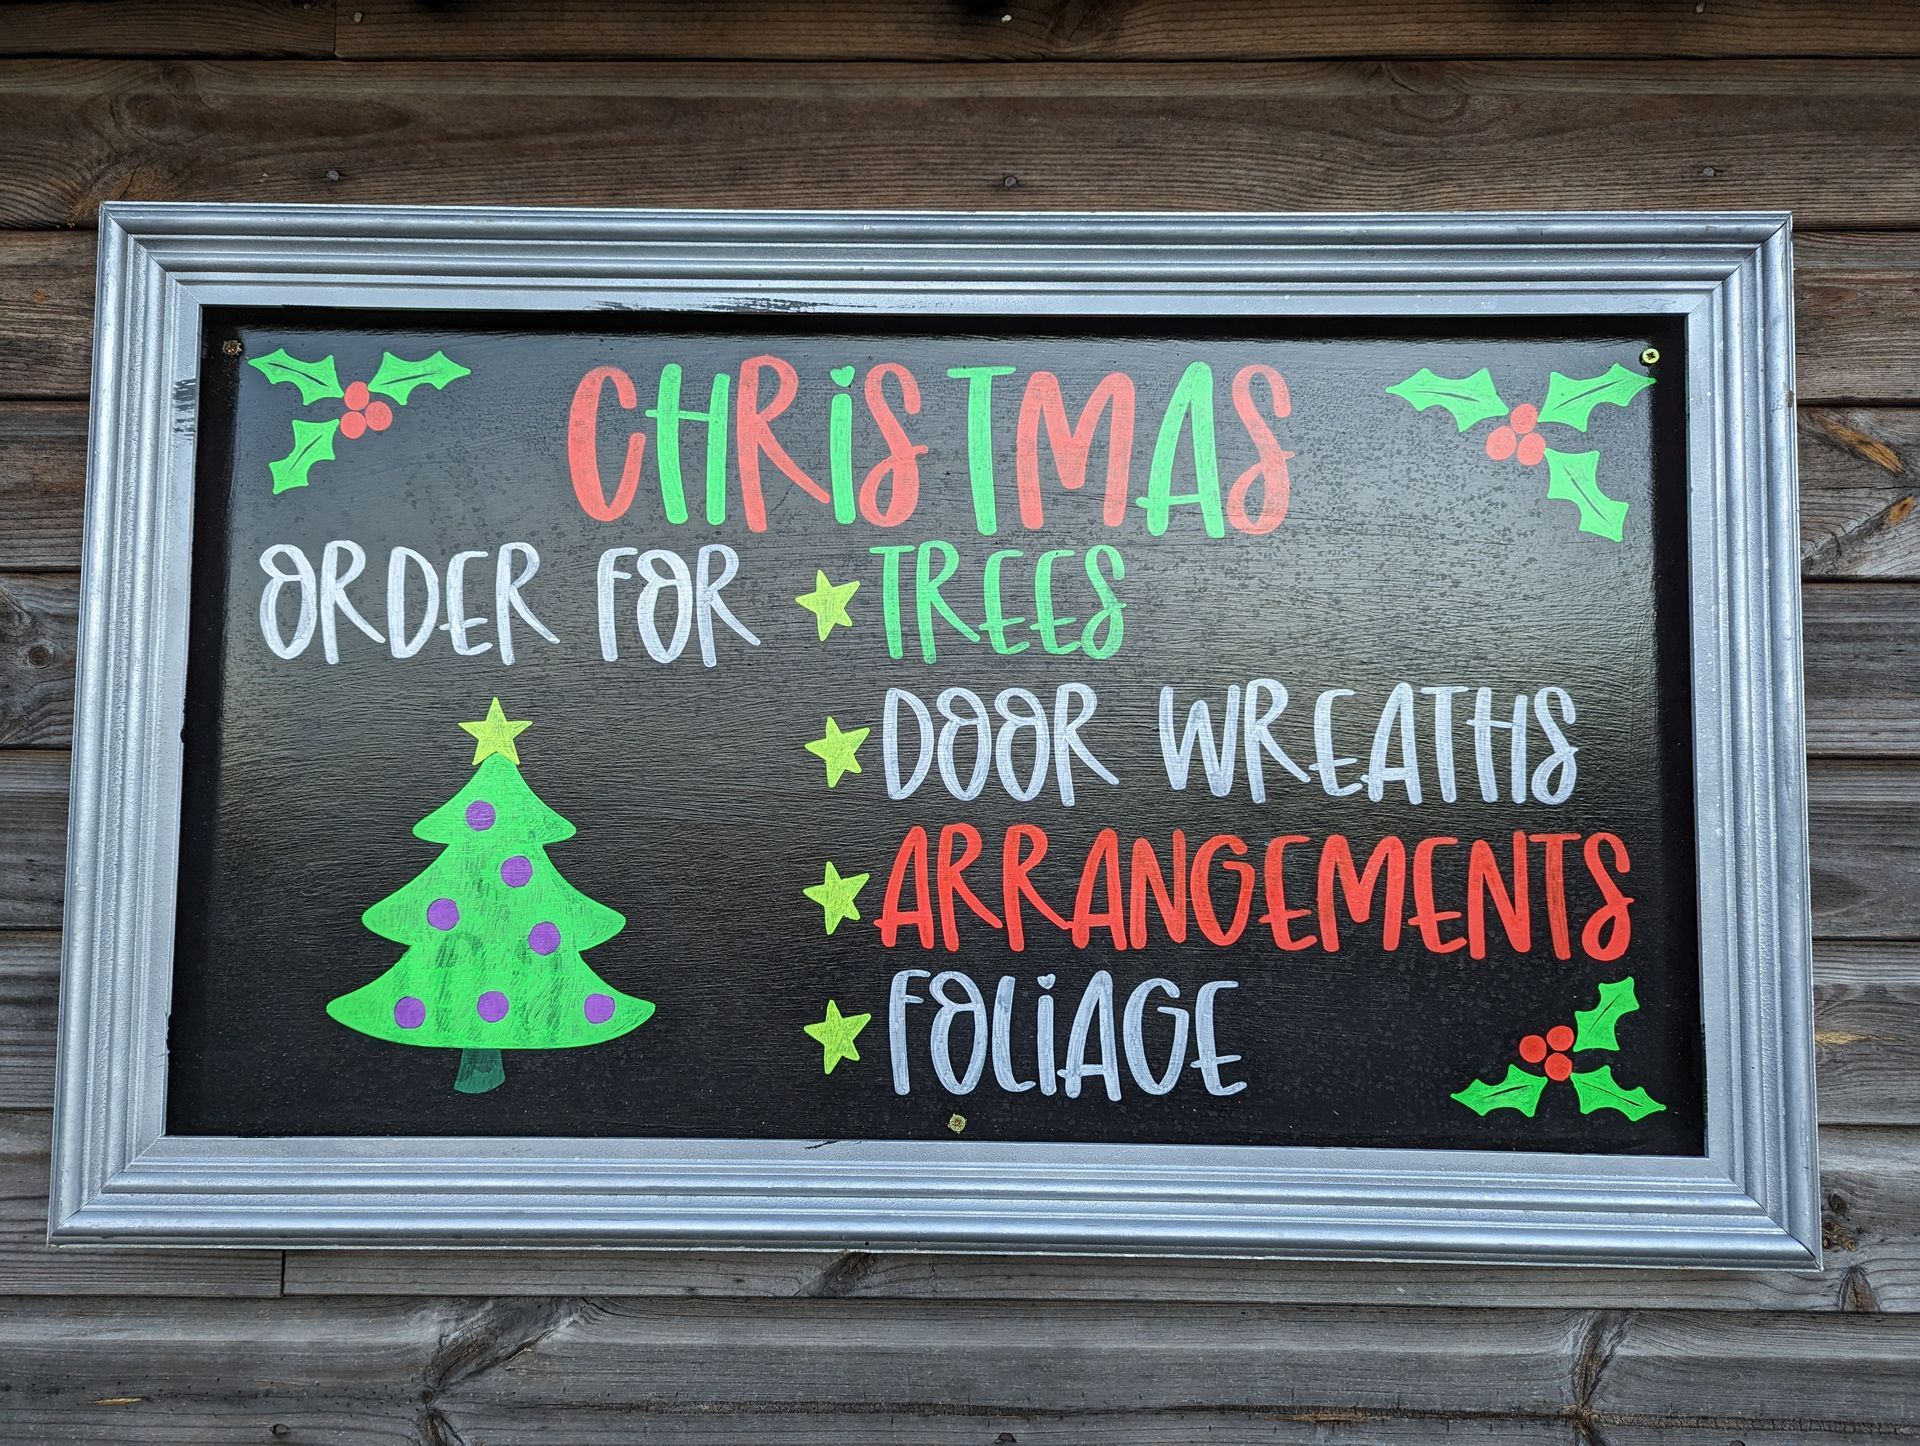 CHRiSTMAS
ORDER FOR TREES
DOOR WREATHS
ARRANGEMENTS
FOLiAGE